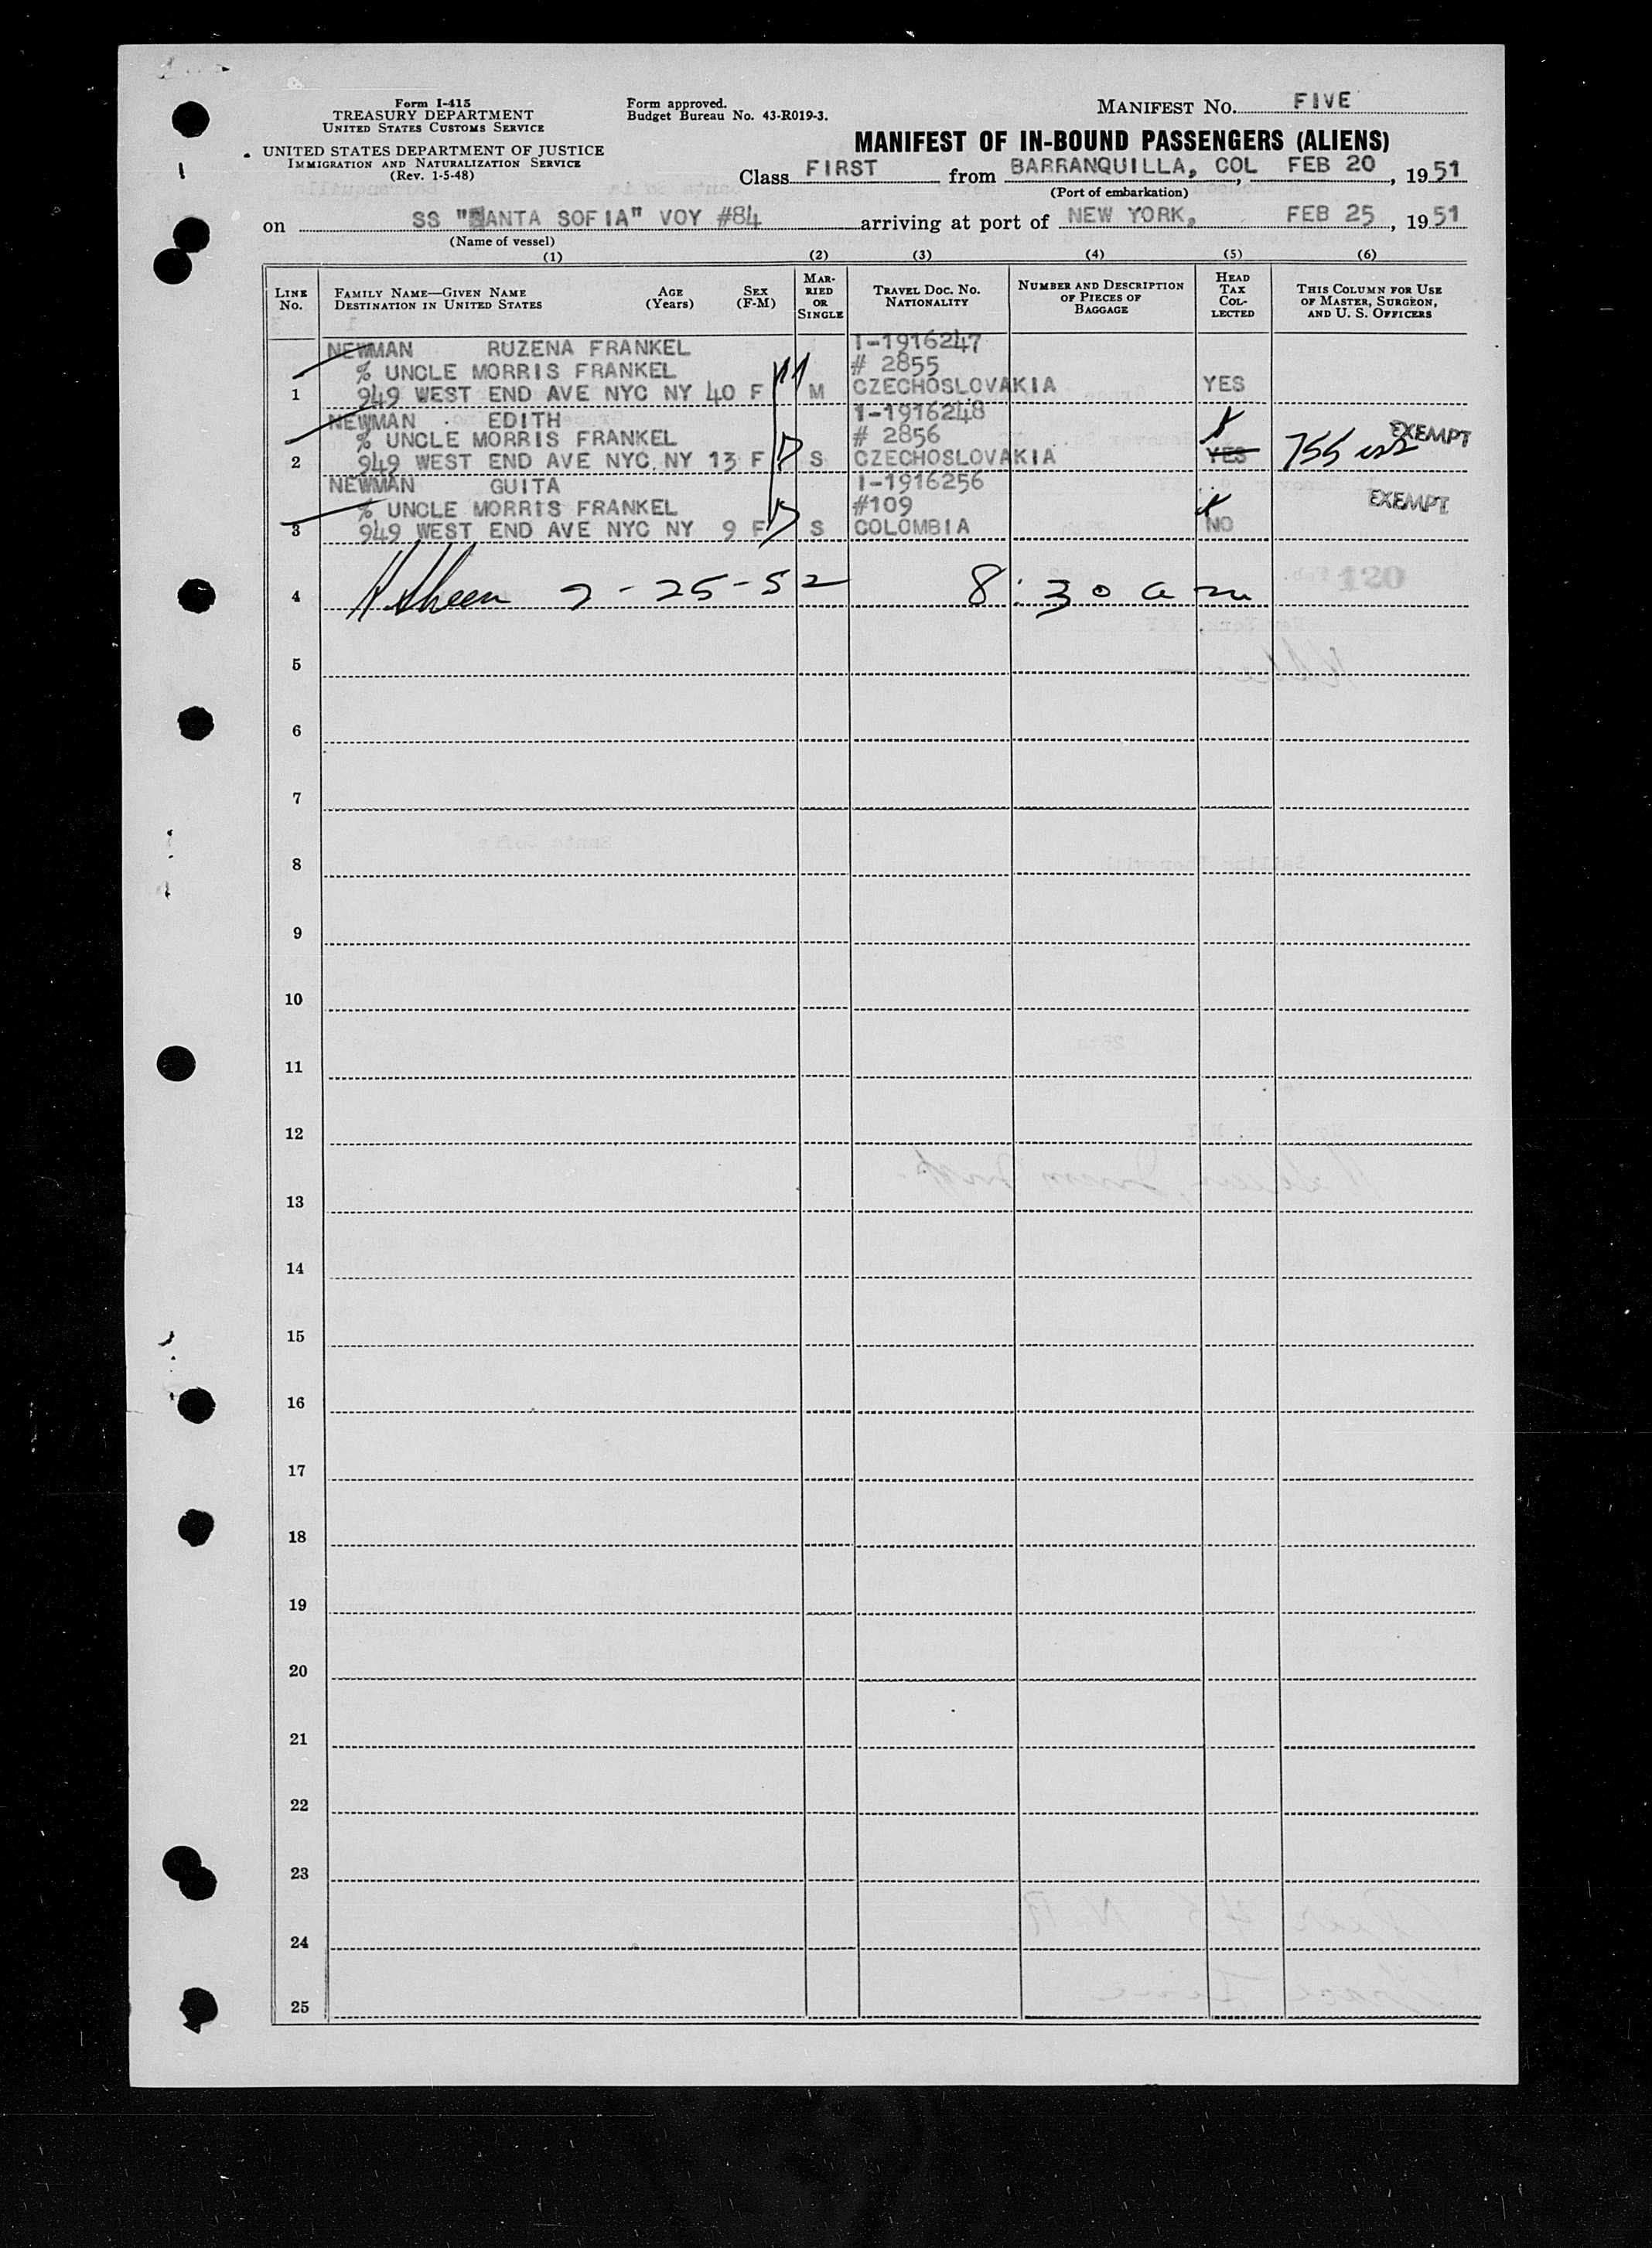 Form I-415
TREASURY DEPARTMENT
UNITED STATES CUSTOMS SERVICE
UNITED STATES DEPARTMENT OF JUSTICE
IMMIGRATION AND NATURALIZATION SERVICE
(Rev. 1-5-48)
Form approved.
Budget Bureau No. 43-R019-3.
MANIFEST NO. FIVE
MANIFEST OF IN-BOUND PASSENGERS (ALIENS)
Class FIRST from BARRANQUILLA, COL, FEB 20, 1951
(Port of embarkation)
on SS "SANTA SOFIA" VOY #84 arriving at port of NEW YORK, FEB 25, 1951
(Name of vessel)
(1) (2) (3) (4) (5) (6)
LINE No.
FAMILY NAME—GIVEN NAME
DESTINATION IN UNITED STATES
AGE (Years)
SEX (F-M)
MARRIED OR SINGLE
TRAVEL DOC. NO.
NATIONALITY
NUMBER AND DESCRIPTION OF PIECES OF BAGGAGE
HEAD TAX COLLECTED
THIS COLUMN FOR USE OF MASTER, SURGEON, AND U. S. OFFICERS
NEWMAN RUZENA FRANKEL I-1916247
% UNCLE MORRIS FRANKEL # 2855
1 949 WEST END AVE NYC NY 40 F M CZECHOSLOVAKIA YES
NEWMAN EDITH I-1916248
% UNCLE MORRIS FRANKEL # 2856 EXEMPT
2 949 WEST END AVE NYC, NY 13 F S CZECHOSLOVAKIA YES 755
NEWMAN GUITA I-1916256
% UNCLE MORRIS FRANKEL #109 EXEMPT
3 949 WEST END AVE NYC NY 9 F S COLOMBIA NO
4 2-25-52 8:30 am
5
6
7
8
9
10
11
12
13
14
15
16
17
18
19
20
21
22
23
24
25